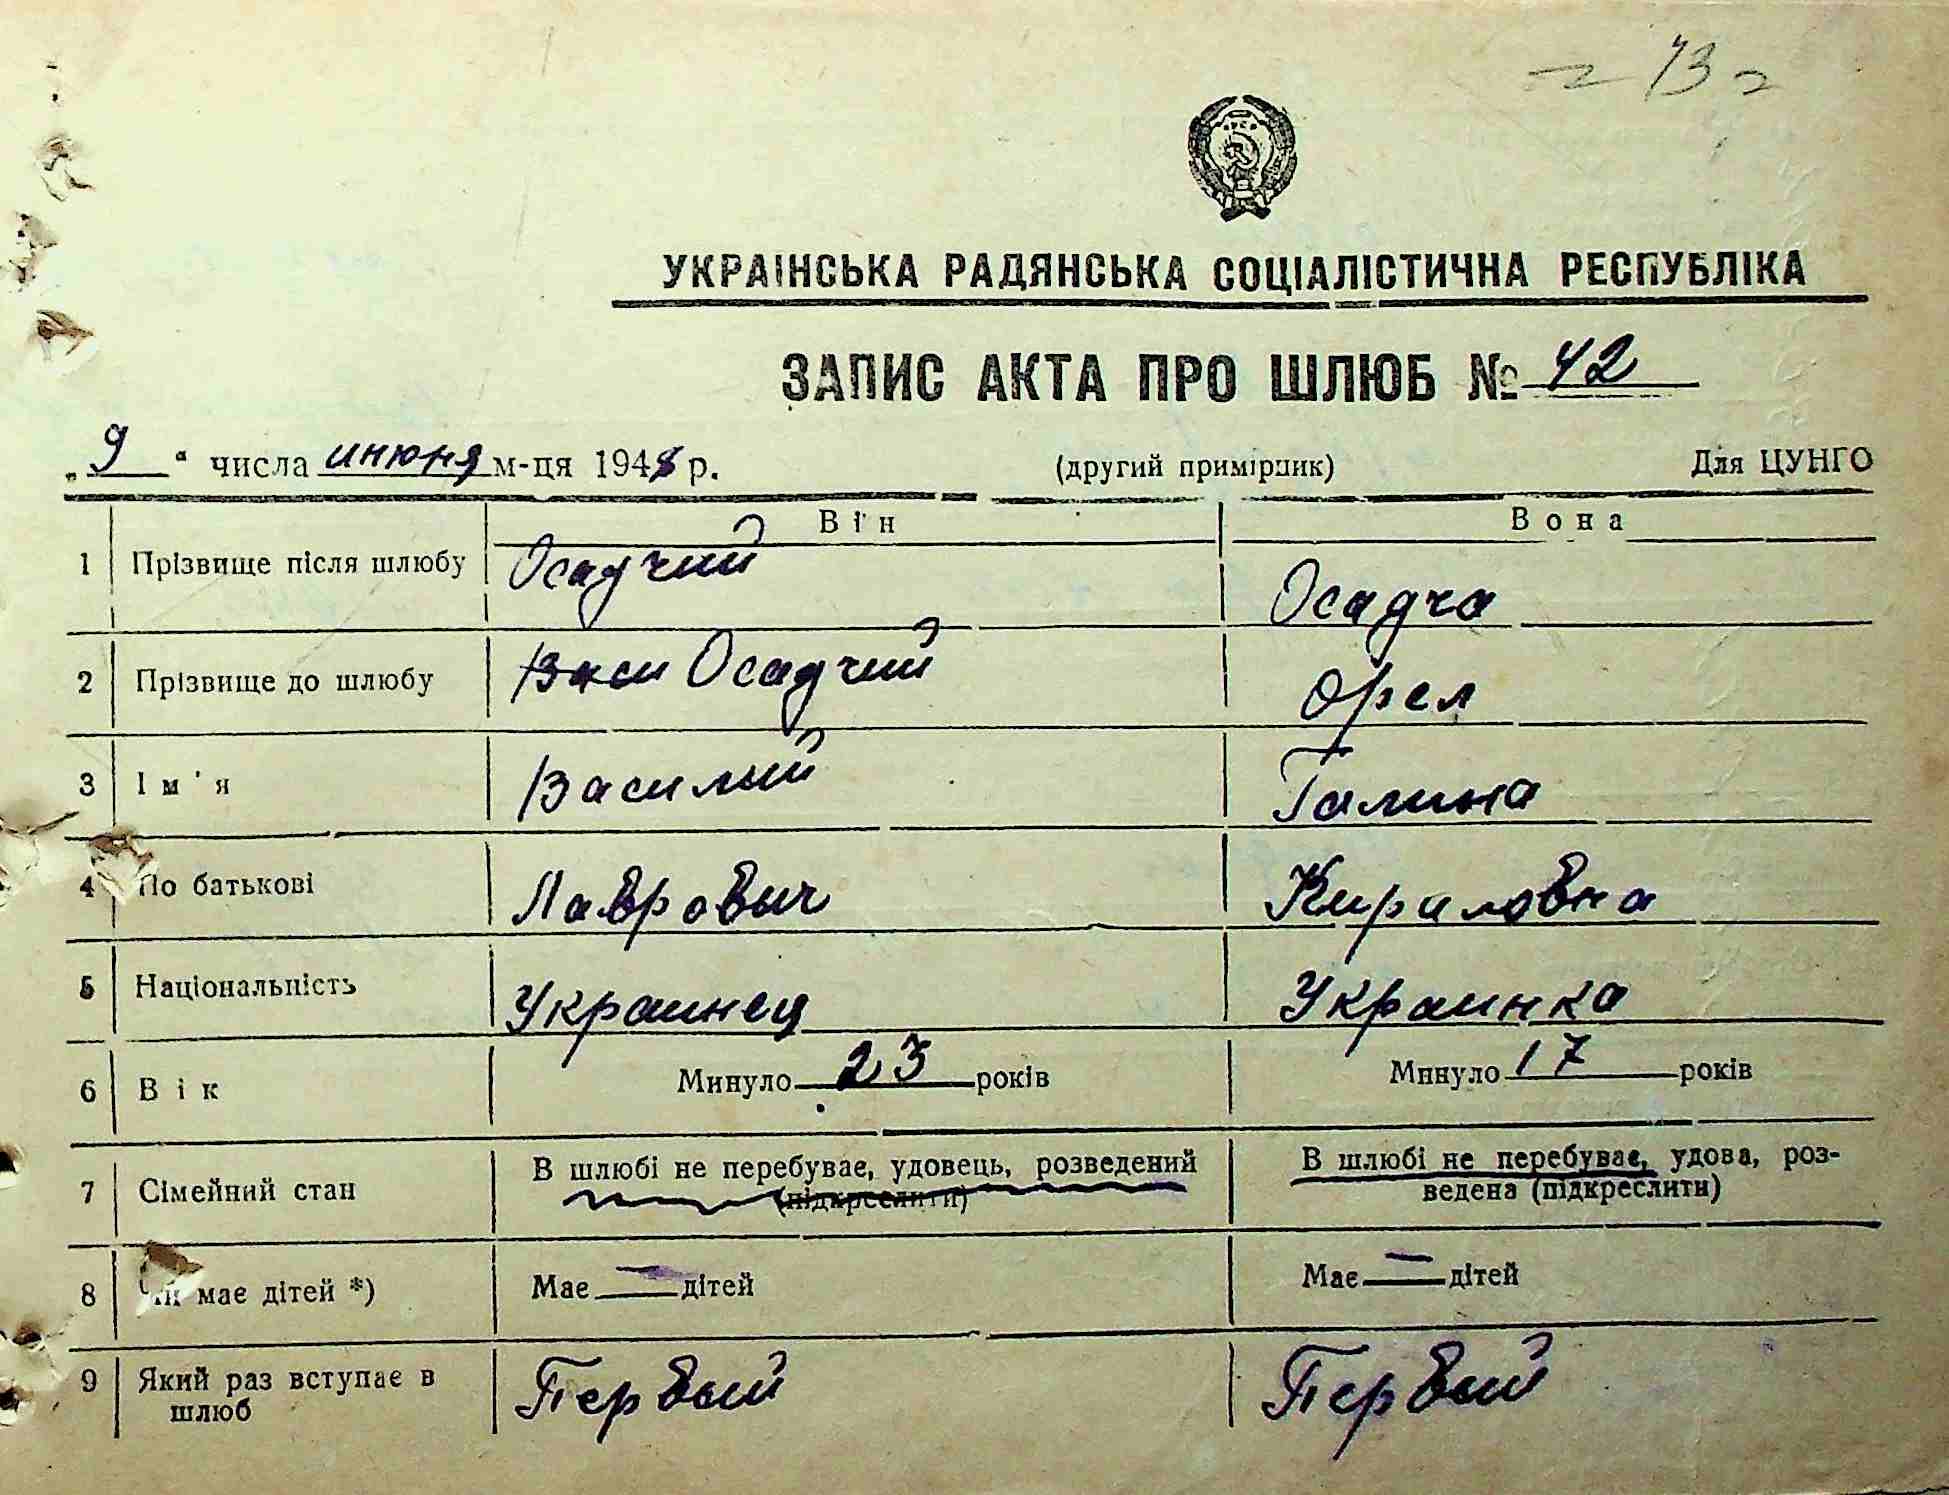 73
УКРАЇНСЬКА РАДЯНСЬКА СОЦІАЛІСТИЧНА РЕСПУБЛІКА
ЗАПИС АКТА ПРО ШЛЮБ № 42
„9“ числа инюня м-ця 1948 р. (другий примірник) Для ЦУНГО
Він Вона
1 Прізвище після шлюбу Осадчий Осадча
2 Прізвище до шлюбу Васи Осадчий Орел
3 Ім'я Василий Галина
4 По батькові Лаврович Кириловна
5 Національність Украинец Украинка
6 Вік Минуло 23 років Минуло 17 років
7 Сімейний стан В шлюбі не перебуває, удовець, розведений (підкреслити) В шлюбі не перебуває, удова, роз-
ведена (підкреслити)
8 Чи має дітей *) Має — дітей Має — дітей
9 Який раз вступає в шлюб Первый Первый